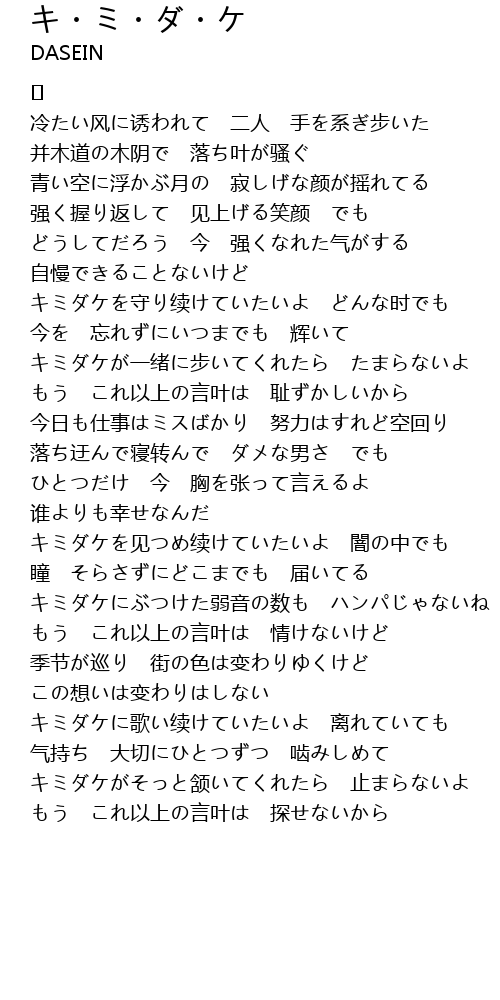 キ・ミ・ダ・ケ
DASEIN
[]
冷たい风に诱われて　二人　手を系ぎ步いた
并木道の木阴で　落ち叶が骚ぐ
青い空に浮かぶ月の　寂しげな颜が摇れてる
强く握り返して　见上げる笑颜　でも
どうしてだろう　今　强くなれた气がする
自慢できることないけど
キミダケを守り续けていたいよ　どんな时でも
今を　忘れずにいつまでも　辉いて
キミダケが一绪に步いてくれたら　たまらないよ
もう　これ以上の言叶は　耻ずかしいから
今日も仕事はミスばかり　努力はすれど空回り
落ち迂んで寝转んで　ダメな男さ　でも
ひとつだけ　今　胸を张って言えるよ
谁よりも幸せなんだ
キミダケを见つめ续けていたいよ　闇の中でも
瞳　そらさずにどこまでも　届いてる
キミダケにぶつけた弱音の数も　ハンパじゃないね
もう　これ以上の言叶は　情けないけど
季节が巡り　街の色は变わりゆくけど
この想いは变わりはしない
キミダケに歌い续けていたいよ　离れていても
气持ち　大切にひとつずつ　啮みしめて
キミダケがそっと颔いてくれたら　止まらないよ
もう　これ以上の言叶は　探せないから